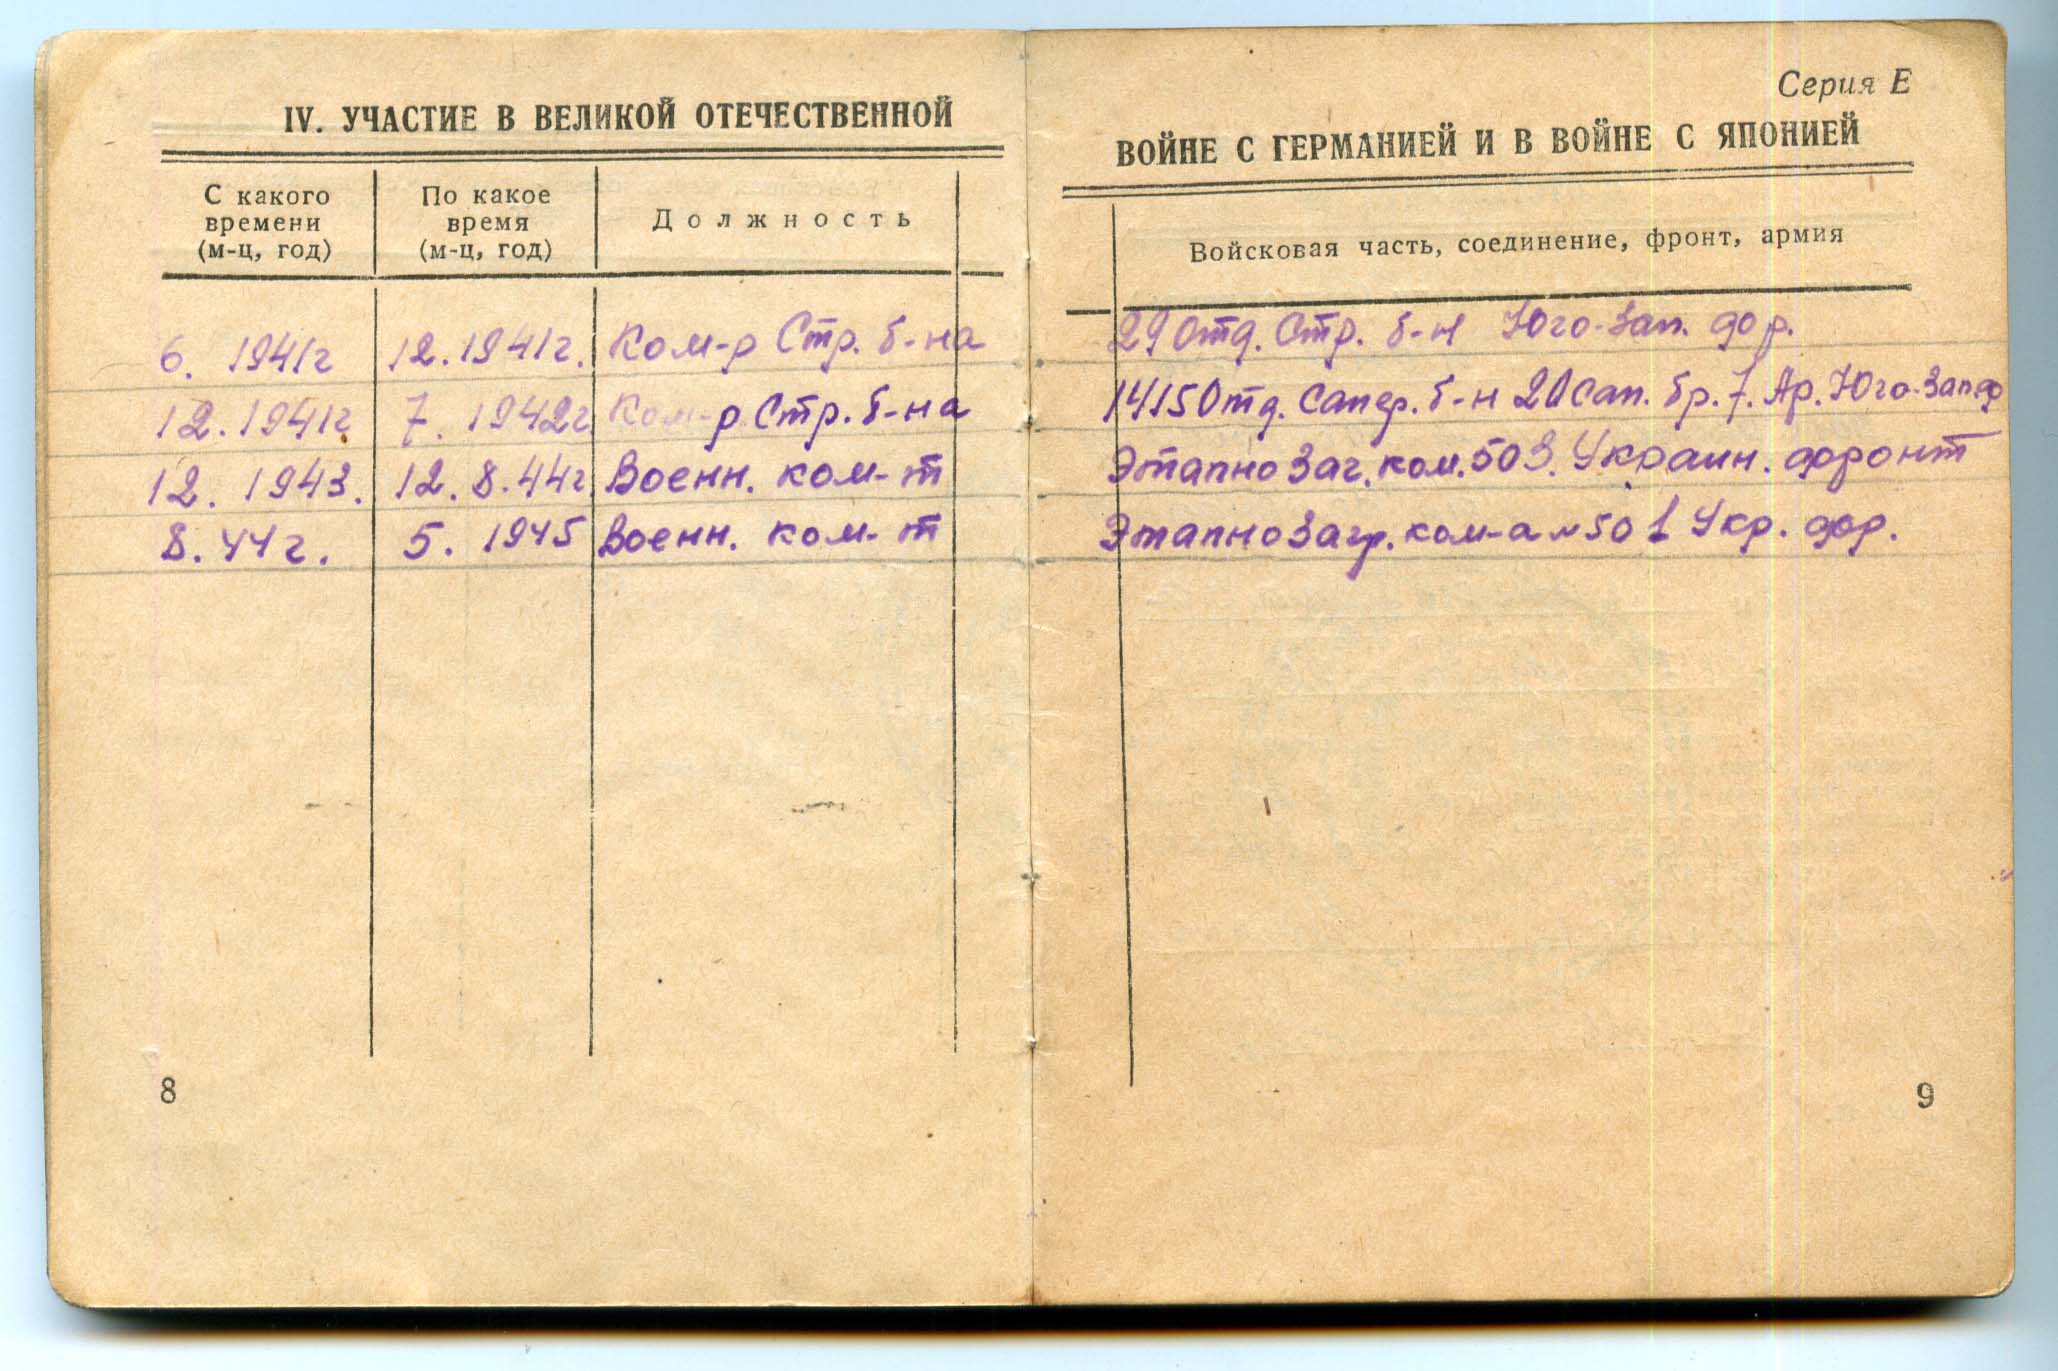 Серия Е
IV. УЧАСТИЕ В ВЕЛИКОЙ ОТЕЧЕСТВЕННОЙ ВОЙНЕ С ГЕРМАНИЕЙ И В ВОЙНЕ С ЯПОНИЕЙ
С какого времени (м-ц, год) По какое время (м-ц, год) Должность Войсковая часть, соединение, фронт, армия
6. 1941г 12.1941г. Ком-р Стр. б-на 29 Отд. Стр. б-н Юго-Зап. фр.
12.1941г 7. 1942г Ком-р Стр. б-на 1415 Отд. Сапер. б-н 21 Сап. бр. 7. Ар. Юго-Зап ф
12. 1943. 12.8.44г Военн. ком-т Этапно Заг. ком. 503. Украин. фронт
8. 44г. 5. 1945 Военн. ком-т Этапно Загр. ком-а № 50 1 Укр. фр.
8
9